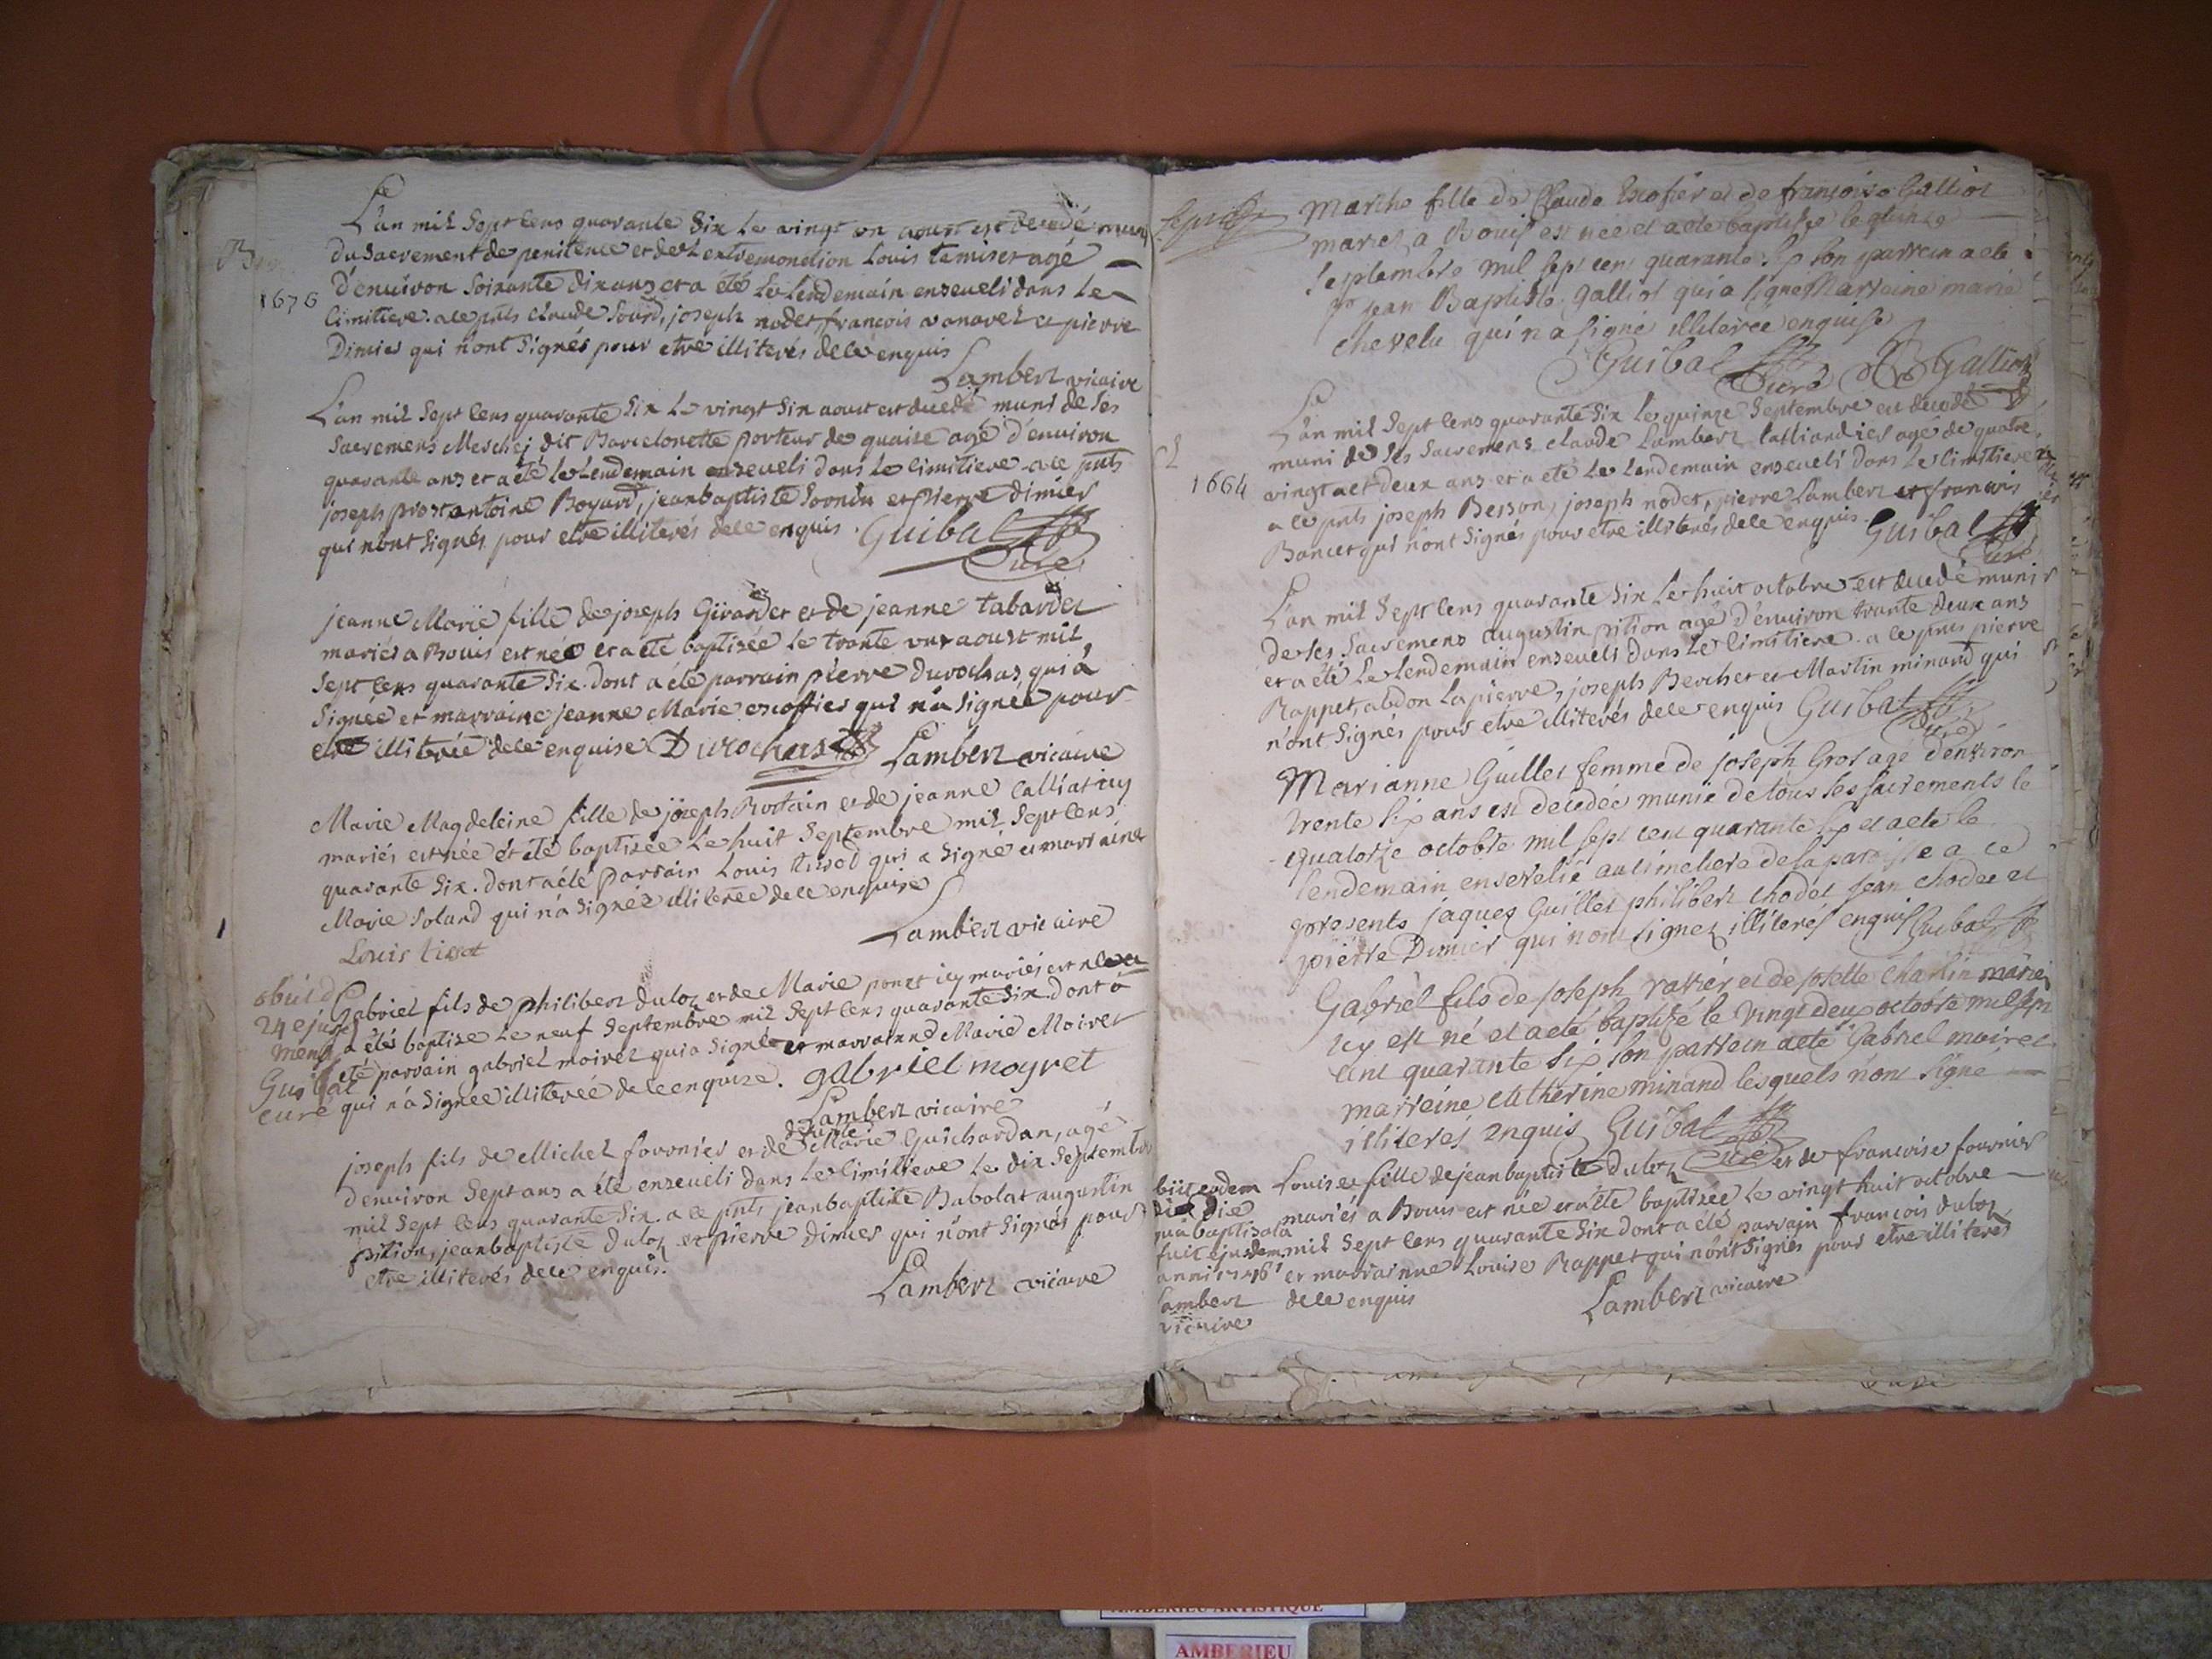 L'an mil Sept Cens quarante Six Le vingt un aoust est decedé muni
du Sacrement de penitence et de L'extremonction Louis temiset agé
1676 d'enuiron Soixante dix ans et a été Le Lendemain enseueli dans Le
Cimitiere a ce pnts claude Sourd, joseph nodet, francois vanavel et pierre
Dimier qui n'ont Signés pour etre illiterés de ce enquis
Lambert vicaire
L'an mil Sept Cens quarante Six Le vingt Six aoust est decedé muni de Ses
Sacremens Meschej dit Barcelonette porteur de quaise agé d'enuiron
quarante ans et a été Le Lendemain enseueli dans Le Cimitiere a ce pnts
joseph prost antoine Boyard, jeanbaptiste Goondu et Pierre Dimier
qui n'ont Signés pour etre illiterés de ce enquis. Guibal
Curé
jeanne Marie fille de joseph Girardet et de jeanne tabardet
mariés a Bouis est née et a été baptisée Le trante un aoust mil
Sept Cens quarante Six. dont a été parrain pierre Durochas, qui a
Signée et marraine jeanne Marie escoffier qui n'a Signée pour
etre illiterée de ce enquise Durochas Lambert vicaire
Marie Magdeleine fille de joseph Rostain et de jeanne Calliat icy
mariés est née et été baptisée Le huit Septembre mil Sept Cens
quarante Six. dont a été Parrain Louis tissot qui a Signé et marraine
Marie Soland qui n'a Signée illiterée de ce enquise
Louis tissot
Lambert vicaire
obiit die
24 ejusd
mens
Guibal
curé
Gabriel fils de philibert duloz et de Marie ponet icy mariés est né et
a étés baptise Le neuf Septembre mil Sept Cens quarante Six. dont a
eté parrain gabriel moiret qui a Signée et marrainne Marie Moiret
qui n'a Signée illiterée de ce enquise. gabriel moyret
Lambert vicaire
joseph fils de Michel fovonier et de defunte Marie Guichardan, agé
d'enuiron Sept ans a été enseueli dans Le Cimitiere Le dix Septembre
mil Sept Cens quarante Six. a ce pnts jeanbaptiste Babolat augustin
pition, jeanbaptiste duloz et pierre dimier qui n'ont Signés pour
etre illiterés de ce enquis.
Lambert vicaire
Marthe fille de Claude Escofier et de françoise Galliot
mariez a Bouis est née et a eté baptisée le quinze
Septembre mil sept cens quarante six son parrein a eté
Sr jean Baptiste Galliot qui a signé Marreine marie
chevelu qui n'a signé illiterée enquise
Guibal Curé Galliot
L'an mil Sept Cens quarante Six Les quinze Septembre est decedé
muni de Ses Sacremens claude Lambert talliandier agé de quatre
1664 vingt et deux ans et a eté Le Lendemain enseueli dans Le Cimitiere
a ce pnts joseph Berson, joseph nodet, pierre Lambert et francois
Bancet qui n'ont Signés pour etre illiterés de ce enquis. Guibal
Curé
L'an mil Sept Cens quarante Six Le huit octobre est decedé muni
de Ses Sacremens augustin pition agé d'enuiron trante deux ans
et a été Le Lendemain enseueli dans Le Cimitiere. a ce pnts pierre
Rappet, abdon Lapierre, joseph Berchet et Martin minand qui
n'ont Signés pour etre illiterés de ce enquis Guibal
Curé
Marianne Guillet femme de joseph Gros agé d'environ
trente six ans est decedée munie de tous ses sacrements le
quatorze octobre mil sept cent quarante six et a eté le
lendemain ensevelie au cimetiere de la paroisse a ce
presents jaques Guillet philibert chodet jean chodet et
pierre Dimier qui n'ont signez illiterés enquis Guibal
Gabriel fils de joseph ravier et de josette charlin mariez
icy est né et a eté baptizé le vingt deux octobre mil sept
cent quarante six son parrein a eté Gabriel moiret
marreine catherine minand lesquels n'ont signé
illiterés enquis Guibal
Curé
obiit eodem
die
quâ baptisata
fuit ejusdem
anni 1746
Lambert
vicaire
Louise fille de jeanbaptiste duloz et de francoise fournier
mariés a Bouis est née et a été baptisée Le vingt huit octobre
mil Sept Cens quarante Six dont a été parrain francois duloz
et marrainne Louise Rappet qui n'ont Signés pour etre illiterés
de ce enquis
Lambert vicaire
AMBERIEU ARTISTIQUE
AMBERIEU